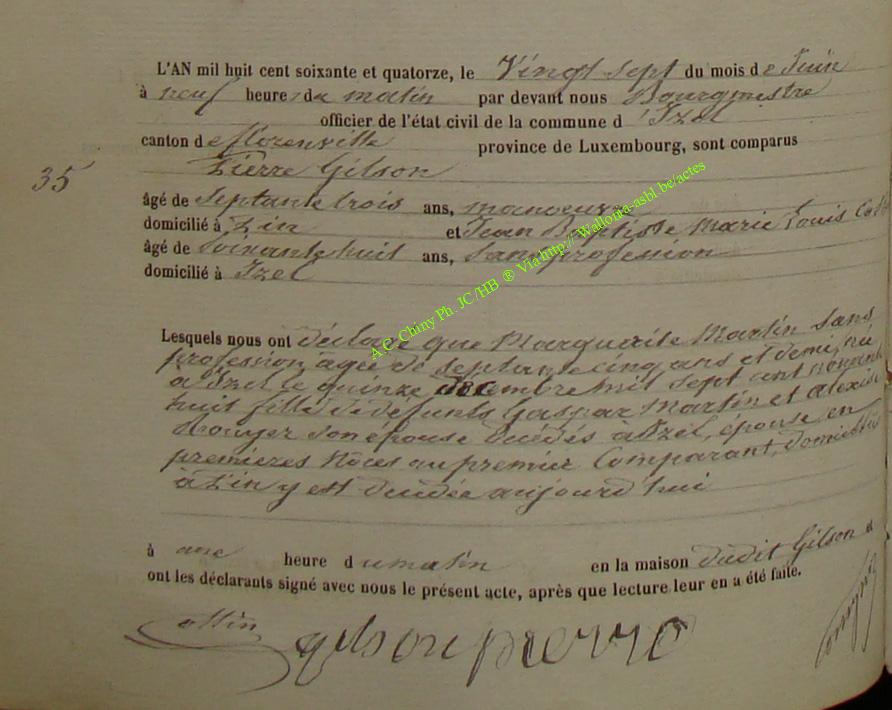 L'AN mil huit cent soixante et quatorze, le Vingt sept du mois de Juin
à neuf heures du matin par devant nous Bourgmestre
officier de l'état civil de la commune d'Izel
canton de florenville province de Luxembourg, sont comparus
Pierre Gilson
35
âgé de septante trois ans, manoeuvre
domicilié à Pin et Jean Baptiste Marie Louis
âgé de soixante huit ans, sans profession
domicilié à Izel
Lesquels nous ont déclaré que Marguerite Martin sans
profession âgée de septante cinq ans et demi, né
à Izel le quinze décembre mil sept cent nonante
huit fille de defunts Gaspar Martin et Alexise
son épouse décédés à Izel, épouse en
premieres Nôces au premier Comparant, domiciliés
à Pin y est décédée aujourd'hui
à une heure du matin en la maison dudit Gilson et
ont les déclarants signé avec nous le présent acte, après que lecture leur en a été faite.
gilson pierre
A.C. Chiny Ph. JC/HB ® Via http://Wallonia-asbl.be/actes